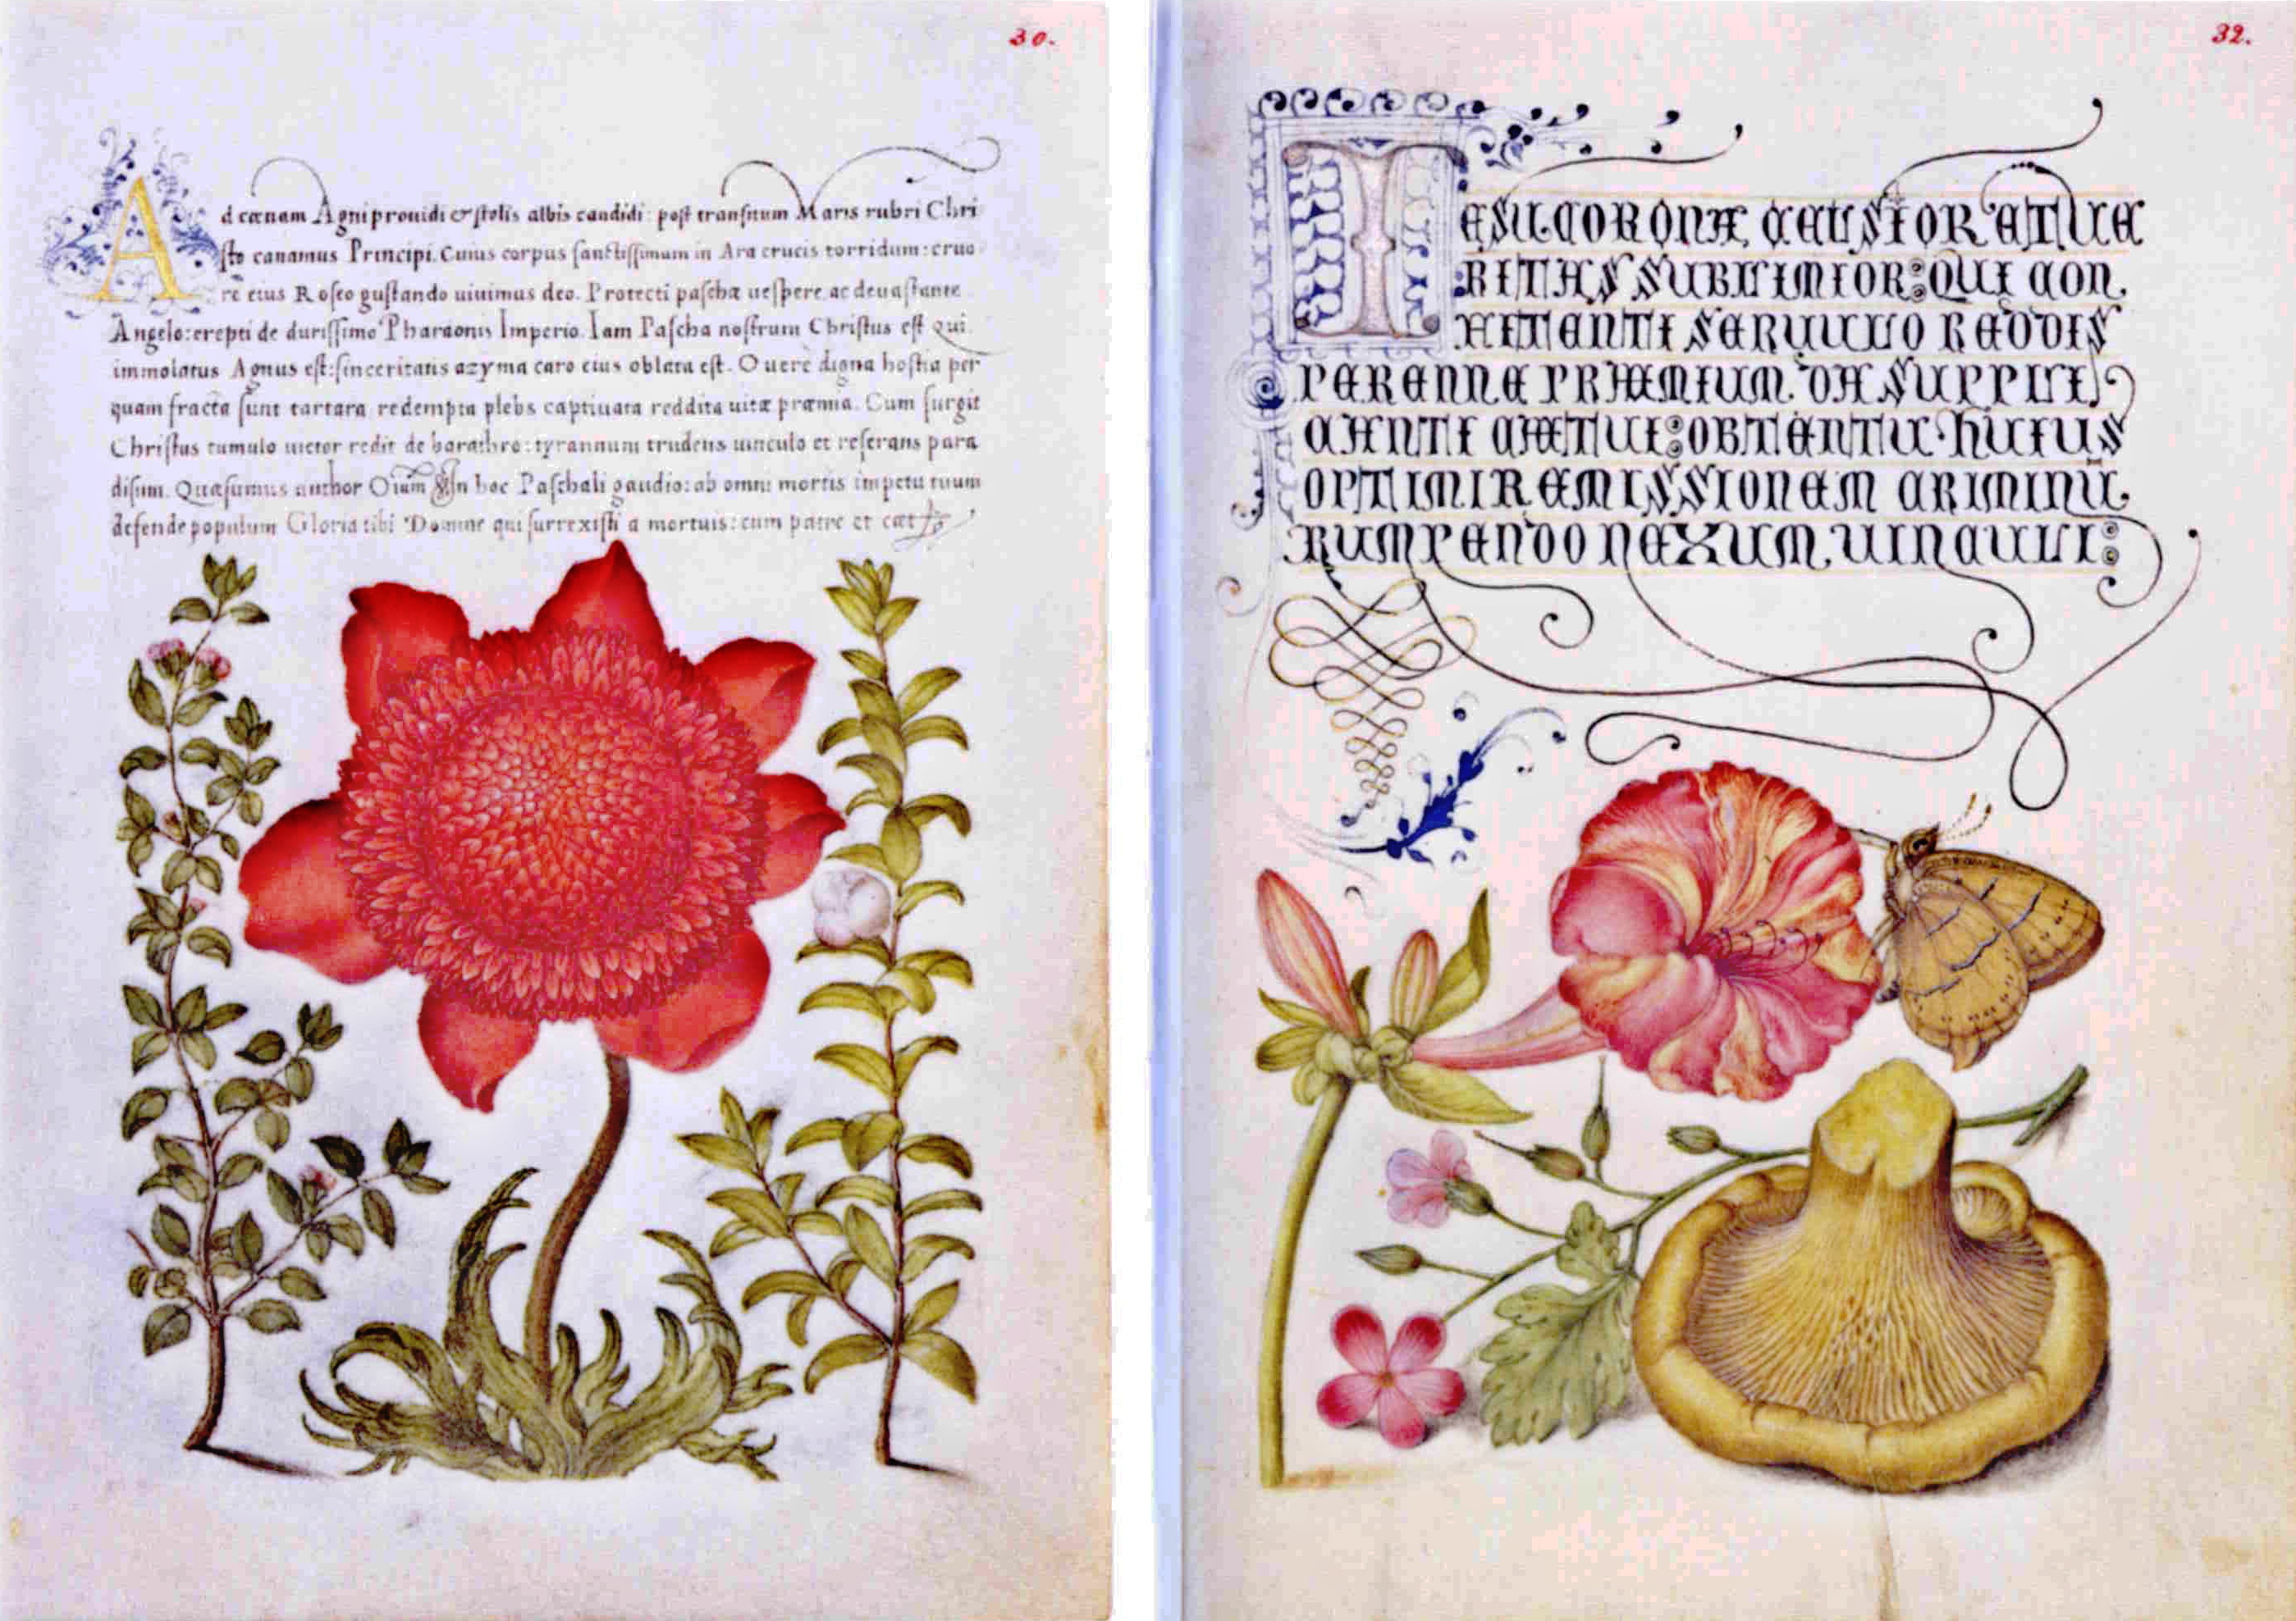 30.
Ad cœnam Agni prouidi & stolis albis candidi: post transitum Maris rubri Chri
sto canamus Principi. Cuius corpus sanctissimum in Ara crucis torridum: cruo
re eius Roseo gustando uiuimus deo. Protecti paschæ uespere ac deuastante
Angelo: erepti de durissimo Pharaonis Imperio. Iam Pascha nostrum Christus est qui
immolatus Agnus est: sinceritatis azyma caro eius oblata est. O uerè digna hostia per
quam fracta sunt tartara redempta plebs captiuata reddita uitæ præmia. Cum surgit
Christus tumulo uictor redit de barathro: tyrannum trudens uinculo et reserans para
disum. Quæsumus author Oium In hoc Paschali gaudio: ab omni mortis impetu tuum
defende populum Gloria tibi Domine qui surrexisti a mortuis: cum patre et cæt
32.
IESU CORONA CELSIOR ET UE
RITAS SUBLIMIOR: QUI CON
FITENTI SERUULO REDDIS
PERENNE PRÆMIUM. DA SUPPLI
CANTI CÆTUI: OBTENTU HUIUS
OPTIMI REMISSIONEM CRIMINŪ
RUMPENDO NEXUM UINCULI: